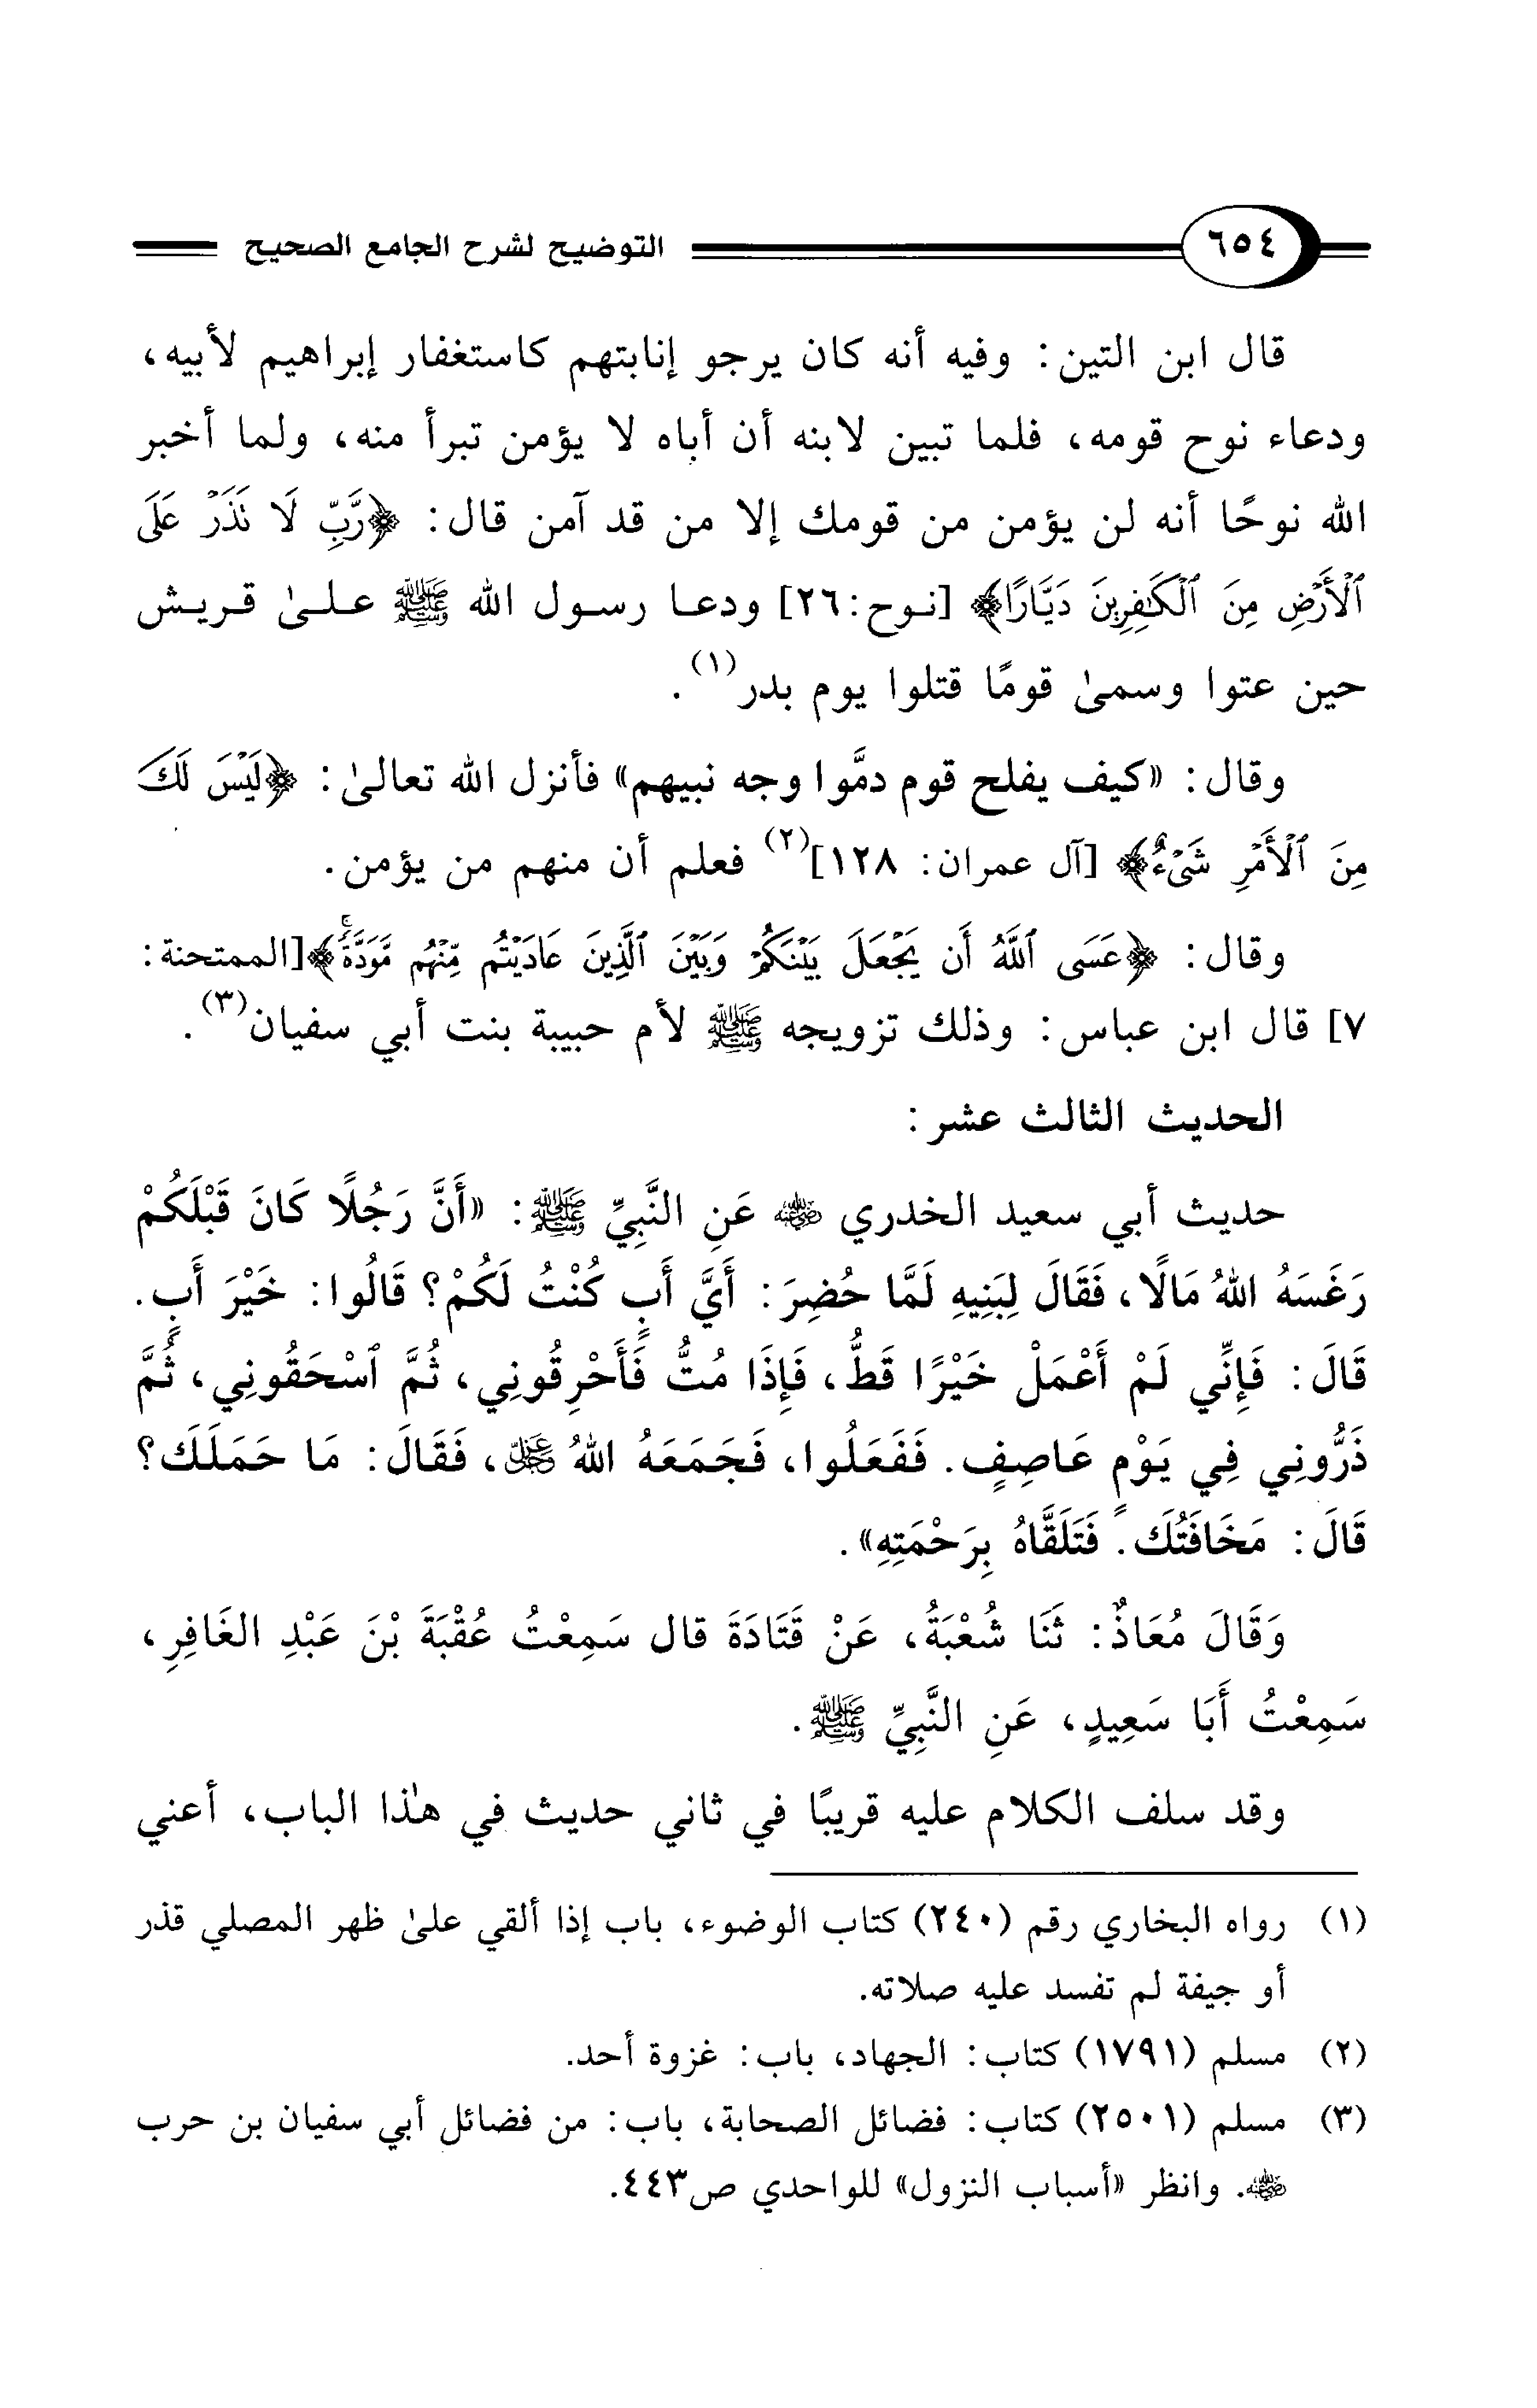 ٦٥٤ التوضيح لشرح الجامع الصحيح
قال ابن التين: وفيه أنه كان يرجو إنابتهم كاستغفار إبراهيم لأبيه،
ودعاء نوح قومه، فلما تبين لابنه أن أباه لا يؤمن تبرأ منه، ولما أخبر
الله نوحًا أنه لن يؤمن من قومك إلا من قد آمن قال: ﴿رَّبِّ لَا نَذَرۡ عَلَى
ٱلۡأَرۡضِ مِنَ ٱلۡكَٰفِرِينَ دَيَّارًا﴾ [نوح:٢٦] ودعا رسول الله ﷺ علىٰ قريش
حين عتوا وسمىٰ قومًا قتلوا يوم بدر(١).
وقال: «كيف يفلح قوم دمَّوا وجه نبيهم» فأنزل الله تعالىٰ: ﴿لَيۡسَ لَكَ
مِنَ ٱلۡأَمۡرِ شَيۡءٌ﴾ [آل عمران: ١٢٨](٢) فعلم أن منهم من يؤمن.
وقال: ﴿عَسَى ٱللَّهُ أَن يَجۡعَلَ بَيۡنَكُمۡ وَبَيۡنَ ٱلَّذِينَ عَادَيۡتُم مِّنۡهُم مَّوَدَّةٗۚ﴾[الممتحنة:
٧] قال ابن عباس: وذلك تزويجه ﷺ لأم حبيبة بنت أبي سفيان(٣).
الحديث الثالث عشر:
حديث أبي سعيد الخدري رضي الله عنه عَنِ النَّبِيِّ ﷺ: «أَنَّ رَجُلًا كَانَ قَبْلَكُمْ
رَغَسَهُ اللهُ مَالًا، فَقَالَ لِبَنِيهِ لَمَّا حُضِرَ: أَيَّ أَبٍ كُنْتُ لَكُمْ؟ قَالُوا: خَيْرَ أَبٍ.
قَالَ: فَإِنِّي لَمْ أَعْمَلْ خَيْرًا قَطُّ، فَإِذَا مُتُّ فَأَحْرِقُونِي، ثُمَّ ٱسْحَقُونِي، ثُمَّ
ذَرُّونِي فِي يَوْمٍ عَاصِفٍ. فَفَعَلُوا، فَجَمَعَهُ اللهُ عز وجل، فَقَالَ: مَا حَمَلَكَ؟
قَالَ: مَخَافَتُكَ. فَتَلَقَّاهُ بِرَحْمَتِهِ».
وَقَالَ مُعَاذٌ: ثَنَا شُعْبَةُ، عَنْ قَتَادَةَ قال سَمِعْتُ عُقْبَةَ بْنَ عَبْدِ الغَافِرِ،
سَمِعْتُ أَبَا سَعِيدٍ، عَنِ النَّبِيِّ ﷺ.
وقد سلف الكلام عليه قريبًا في ثاني حديث في هٰذا الباب، أعني
(١) رواه البخاري رقم (٢٤٠) كتاب الوضوء، باب إذا ألقي علىٰ ظهر المصلي قذر
أو جيفة لم تفسد عليه صلاته.
(٢) مسلم (١٧٩١) كتاب: الجهاد، باب: غزوة أحد.
(٣) مسلم (٢٥٠١) كتاب: فضائل الصحابة، باب: من فضائل أبي سفيان بن حرب
رضي الله عنه. وانظر «أسباب النزول» للواحدي ص٤٤٣.